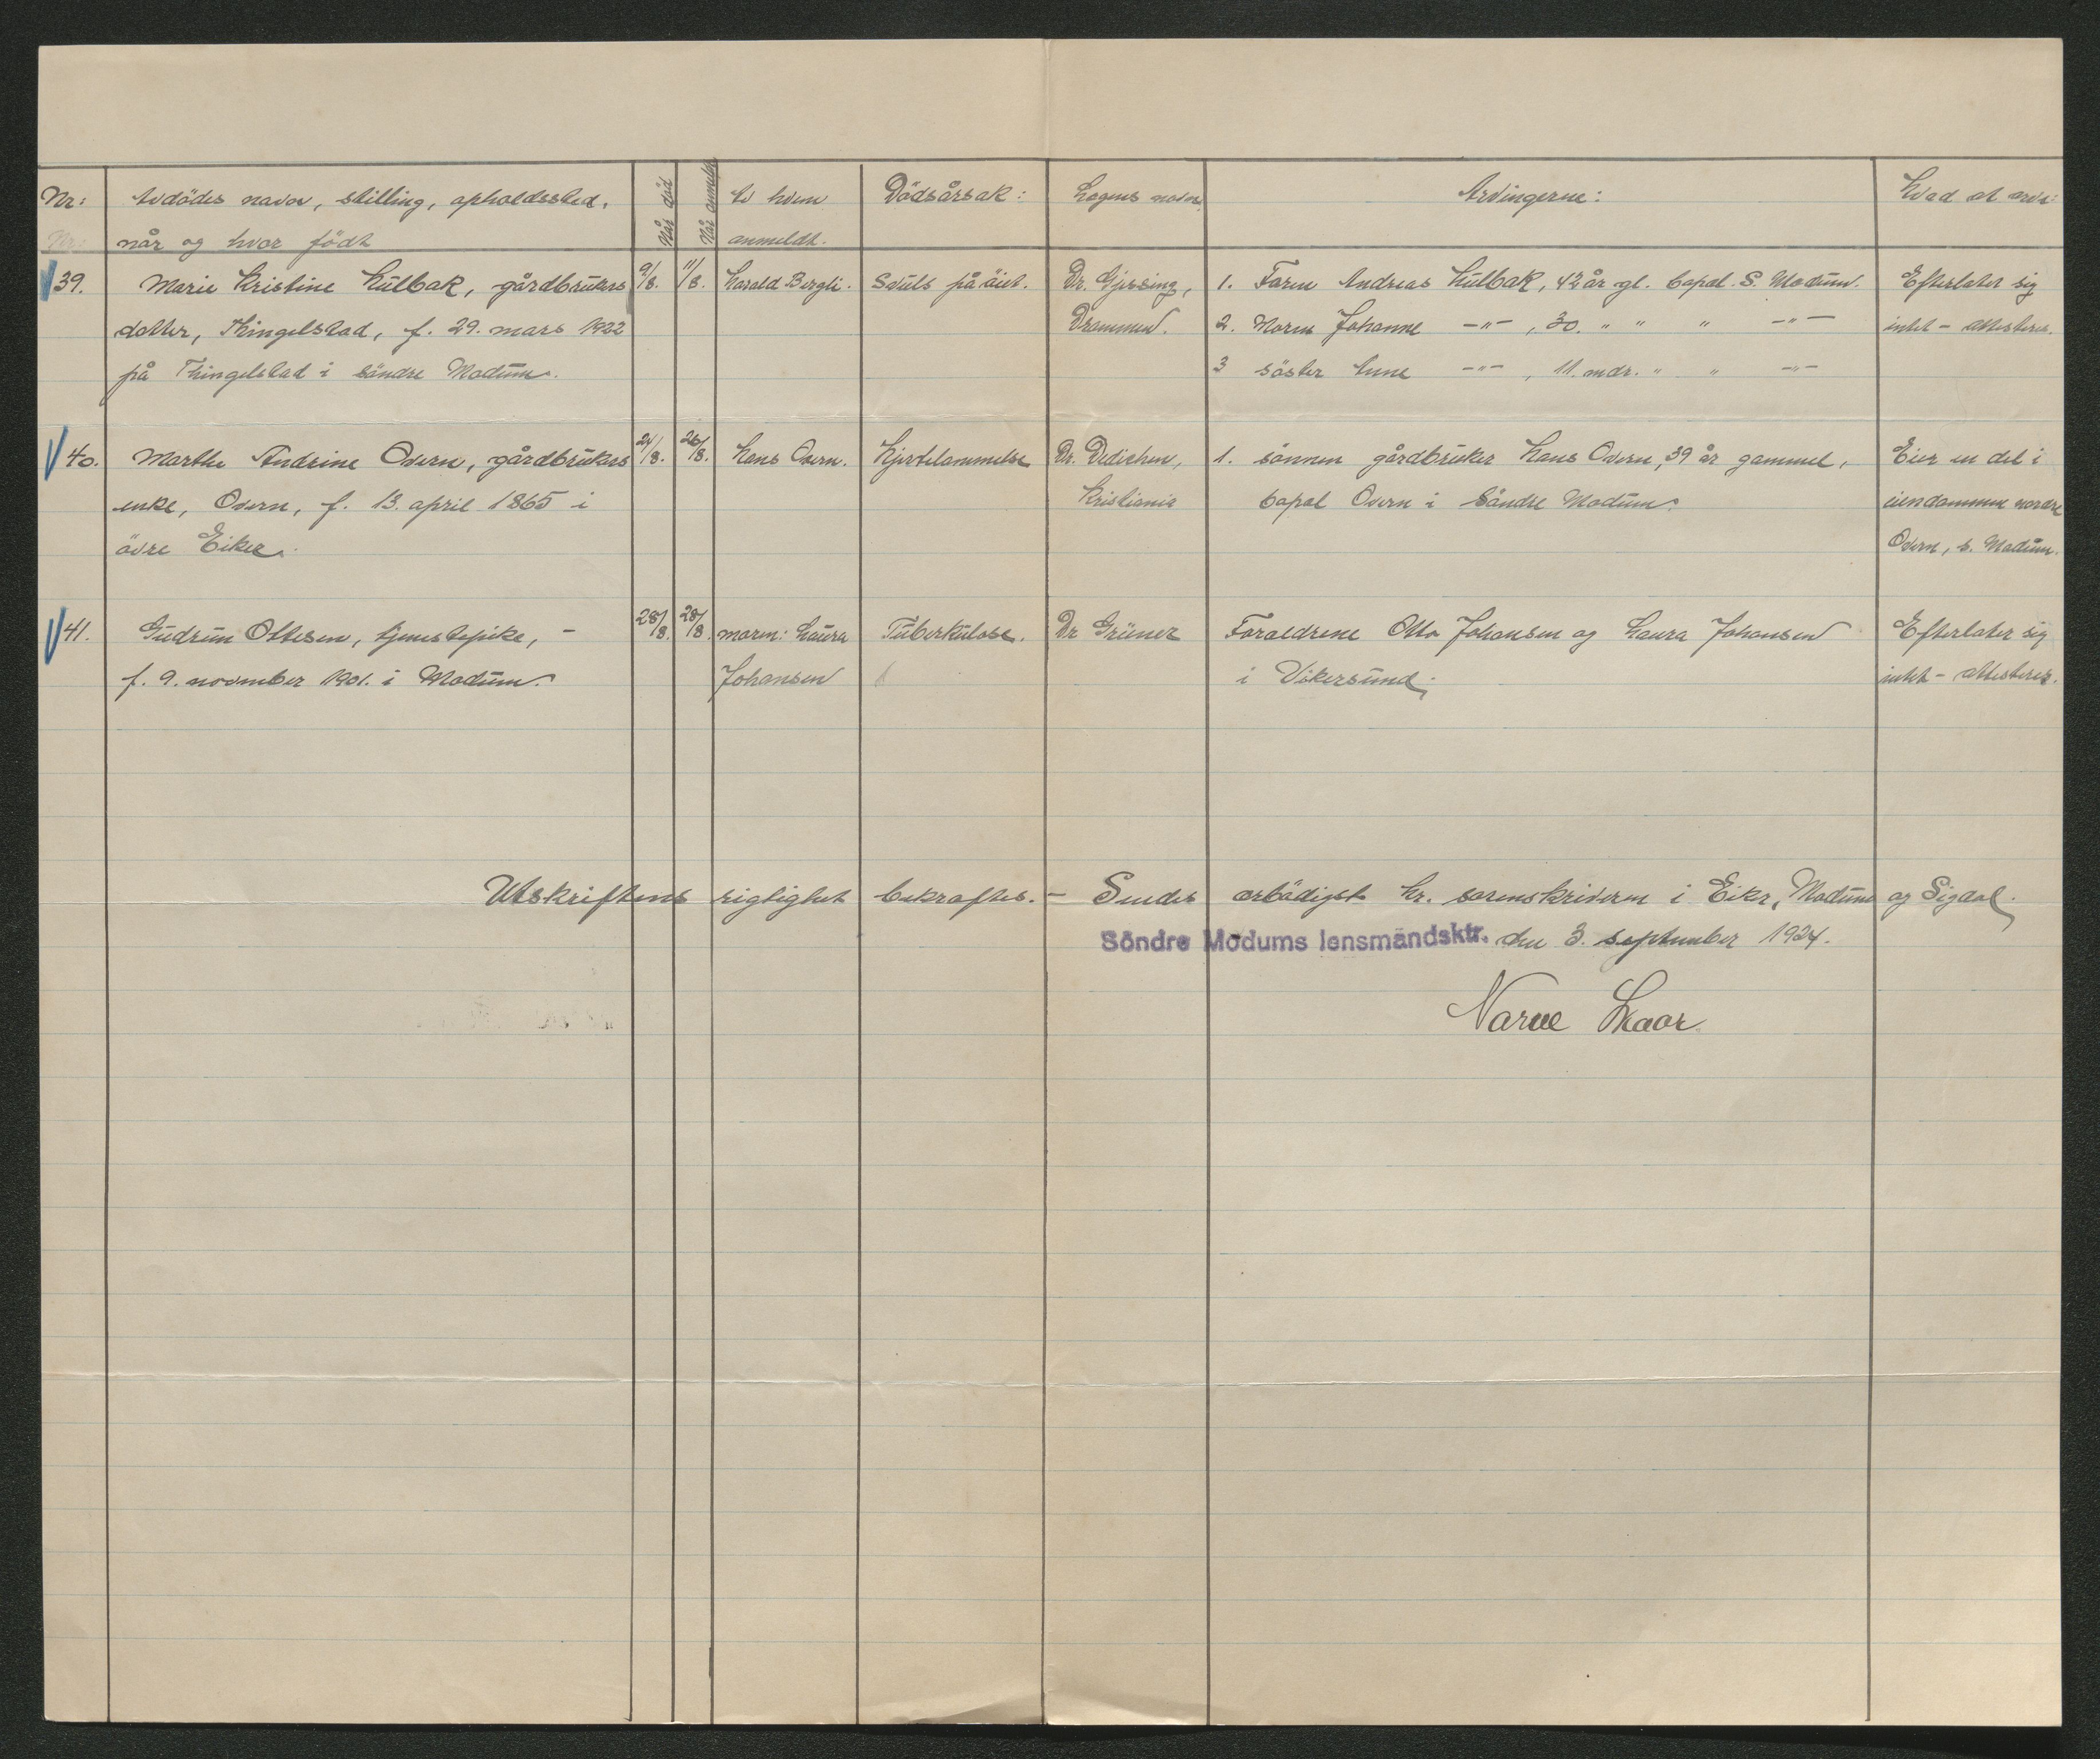 Nr: Avdödes navn, stilling, opholdssted, Når död Når anmeldt Av hvem Dödsårsak: Lægens navn, Arvingerne: Hvad at arve:
Nr: når og hvor födt anmeldt.
39. Marie Kristine Hulbak, gårdbrukers 9/8. 11/8. Harald Bergli. Svulst på öiet. Dr. Gjessing, 1. Faren Andreas Hulbak, 42 år gl. bopæl. S. Modum. Efterlater sig
datter, Thingelstad, f. 29. mars 1922 Drammen. 2. Moren Johanne —"— , 30. " " " —"— intet - attesteres.
på Thingelstad i söndre Modum. 3 söster Anne —"— , 11. mdr. " " —"—
40. Marthe Andrine Overn, gårdbrukers 24/8. 26/8. Hans Overn. Hjertelammelse Dr. Dedichen, 1. sönnen gårdbruker Hans Overn, 39 år gammel, Eier en del i
enke, Overn, f. 13. april 1865 i Kristiania bopæl Overn i Söndre Modum. eiendommen nordre
övre Eiker. Overn, s. Modum.
41. Gudrun Ottesen, tjenestepike, - 28/8. 28/8. moren: Laura Tuberkulose. Dr Grüner Forældrene Otto Johansen og Laura Johansen Efterlater sig
f. 9. november 1901. i Modum. Johansen i Vikersund. intet - attesteres.
Utskriftens rigtighet bekræftes. - Sendes ærbödigst hr. sorenskriveren i Eiker, Modum og Sigdal.
Söndre Modums lensmandsktr. den 3. september 1924.
Narve Skaar.